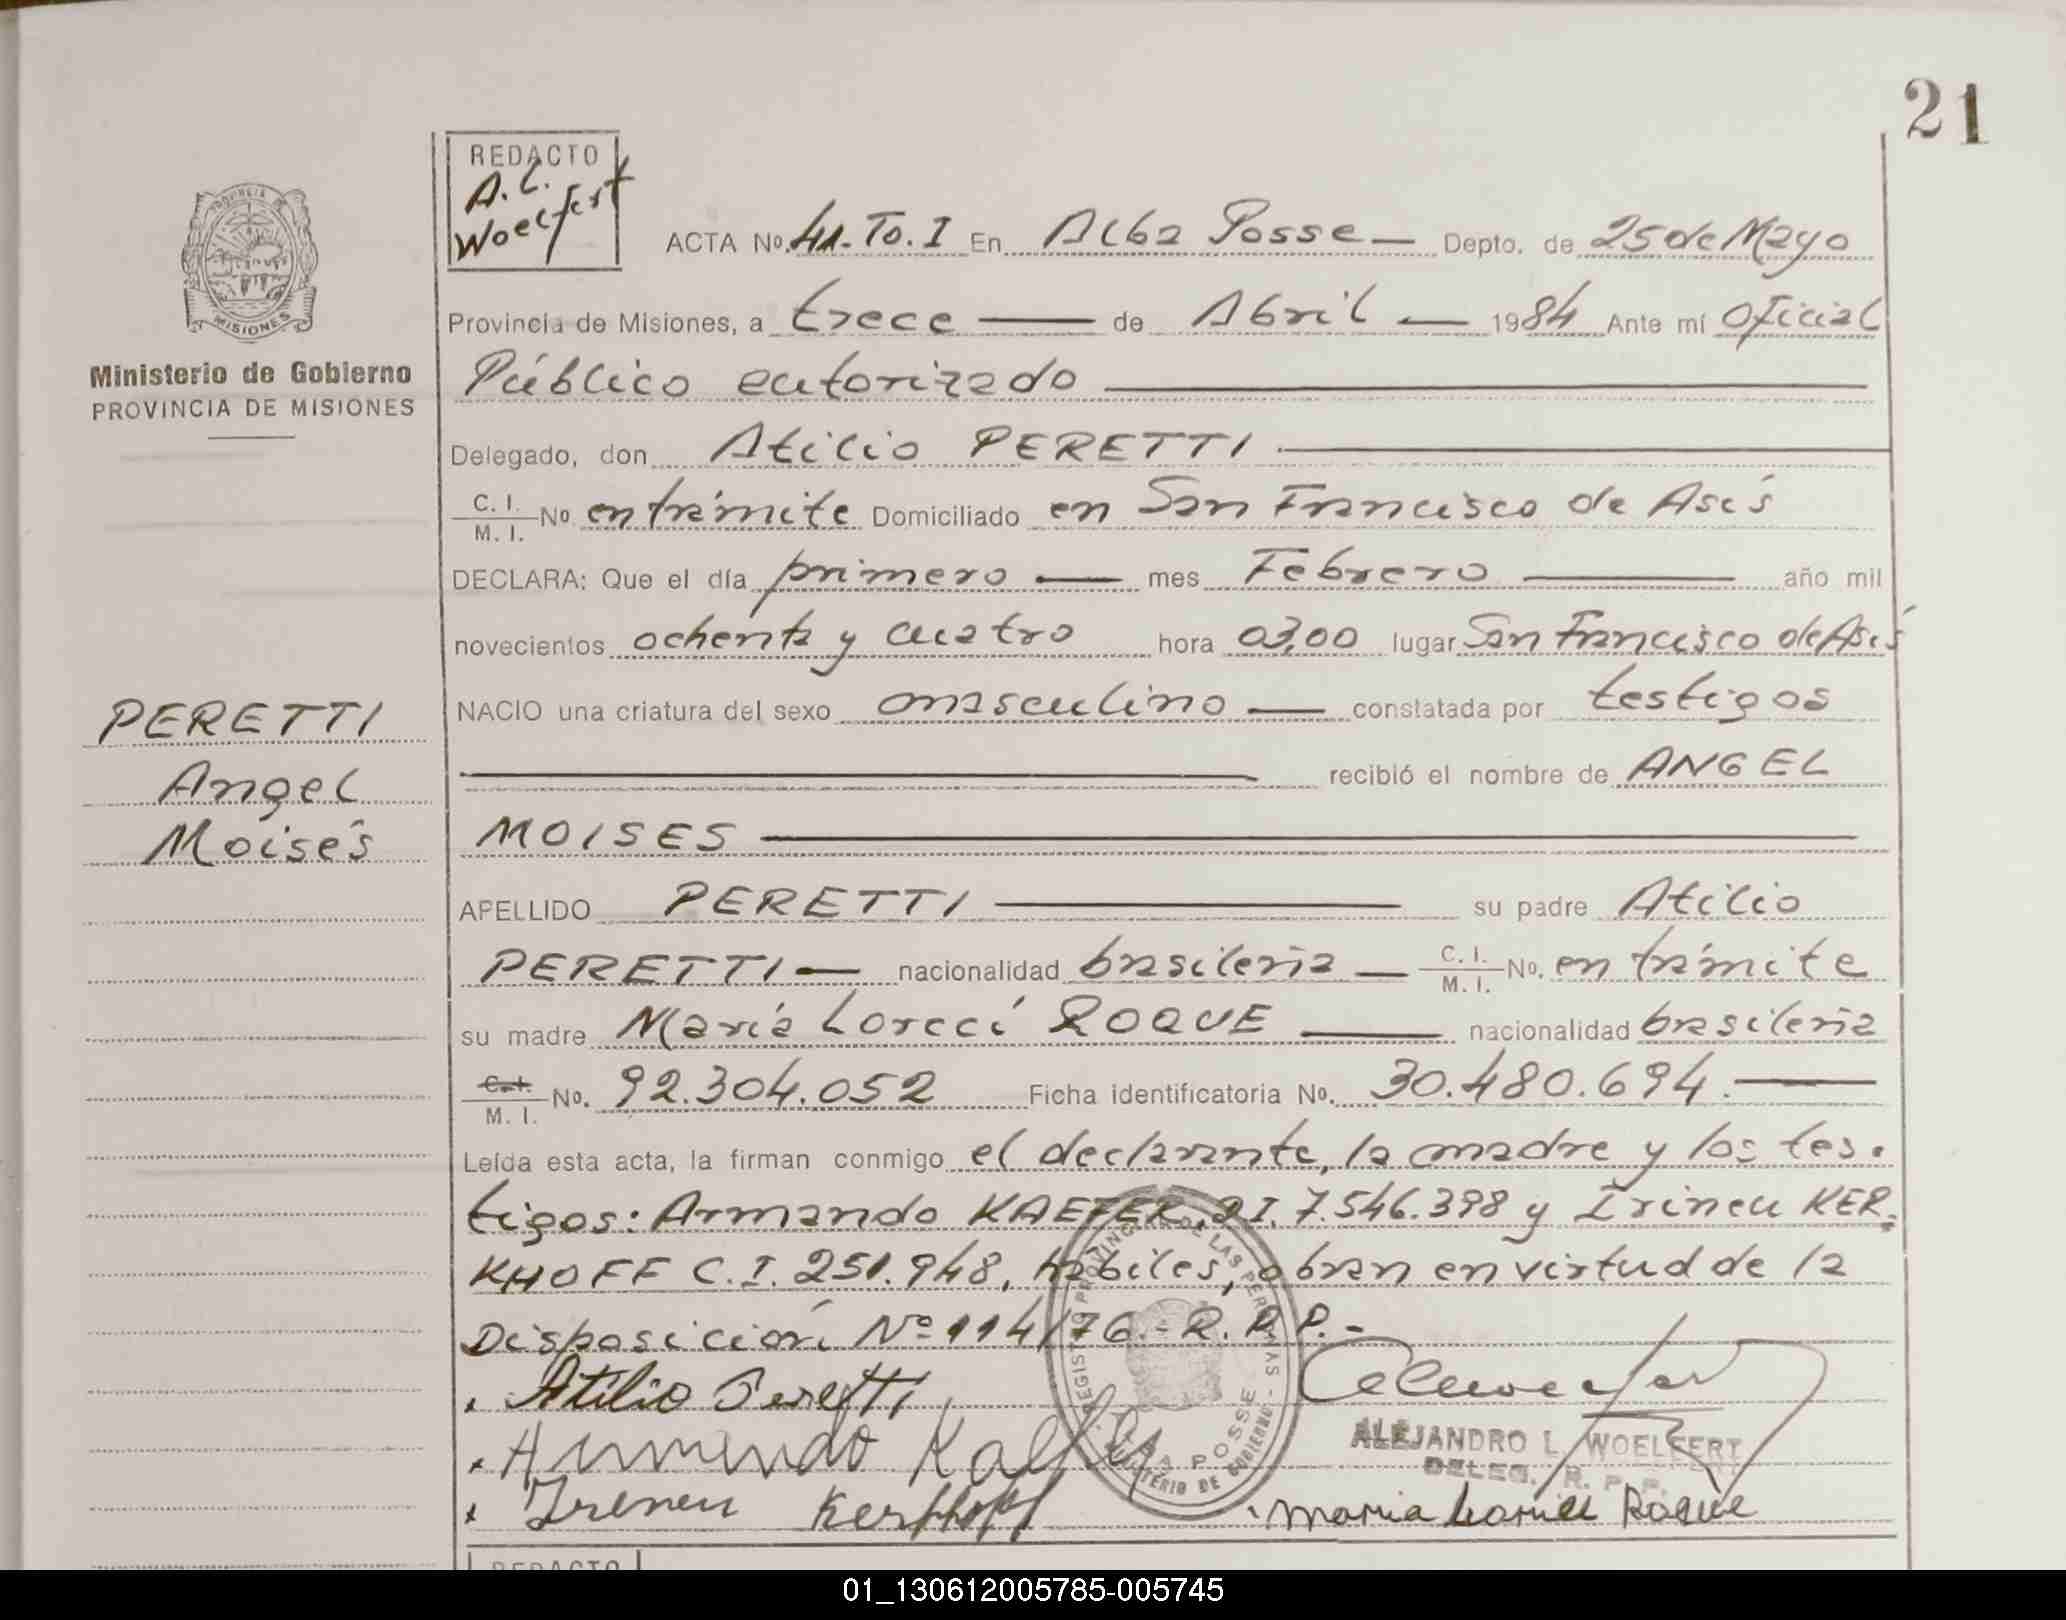 21
REDACTO
A. L.
Woelfert
ACTA No. 41-To. I En Alba Posse — Depto. de 25 de Mayo
PROVINCIA DE
MISIONES
Provincia de Misiones, a trece — de Abril — 1984 Ante mí Oficial
Ministerio de Gobierno
PROVINCIA DE MISIONES
Público autorizado
Delegado, don Atilio PERETTI
C. I.
M. I. No. en trámite Domiciliado en San Francisco de Asís
DECLARA: Que el día primero — mes Febrero — año mil
novecientos ochenta y cuatro hora 03,00 lugar San Francisco de Asís
PERETTI
Angel
Moisés
NACIO una criatura del sexo masculino — constatada por testigos
recibió el nombre de ANGEL
MOISES
APELLIDO PERETTI — su padre Atilio
PERETTI — nacionalidad brasileña — C. I.
M. I. No. en trámite
su madre María Lorecí ROQUE — nacionalidad brasileña
C. I.
M. I. No. 92.304.052 Ficha identificatoria No. 30.480.694. —
Leída esta acta, la firman conmigo el declarante, la madre y los tes-
tigos: Armando KAEFER, DI. 7.546.398 y Irineu KER-
KHOFF C.I. 251.948, hábiles, obran en virtud de la
Disposición Nº 114/76.- R.P.P.-
Atilio Peretti
Armindo
Ireneu Kerkhoff
REGISTRO PROVINCIAL DE LAS PERSONAS - MINISTERIO DE GOBIERNO -
ALBA POSSE
ALEJANDRO L. WOELFERT
DELEG. R. P. P.
Maria Roque
REDACTO
01_130612005785-005745